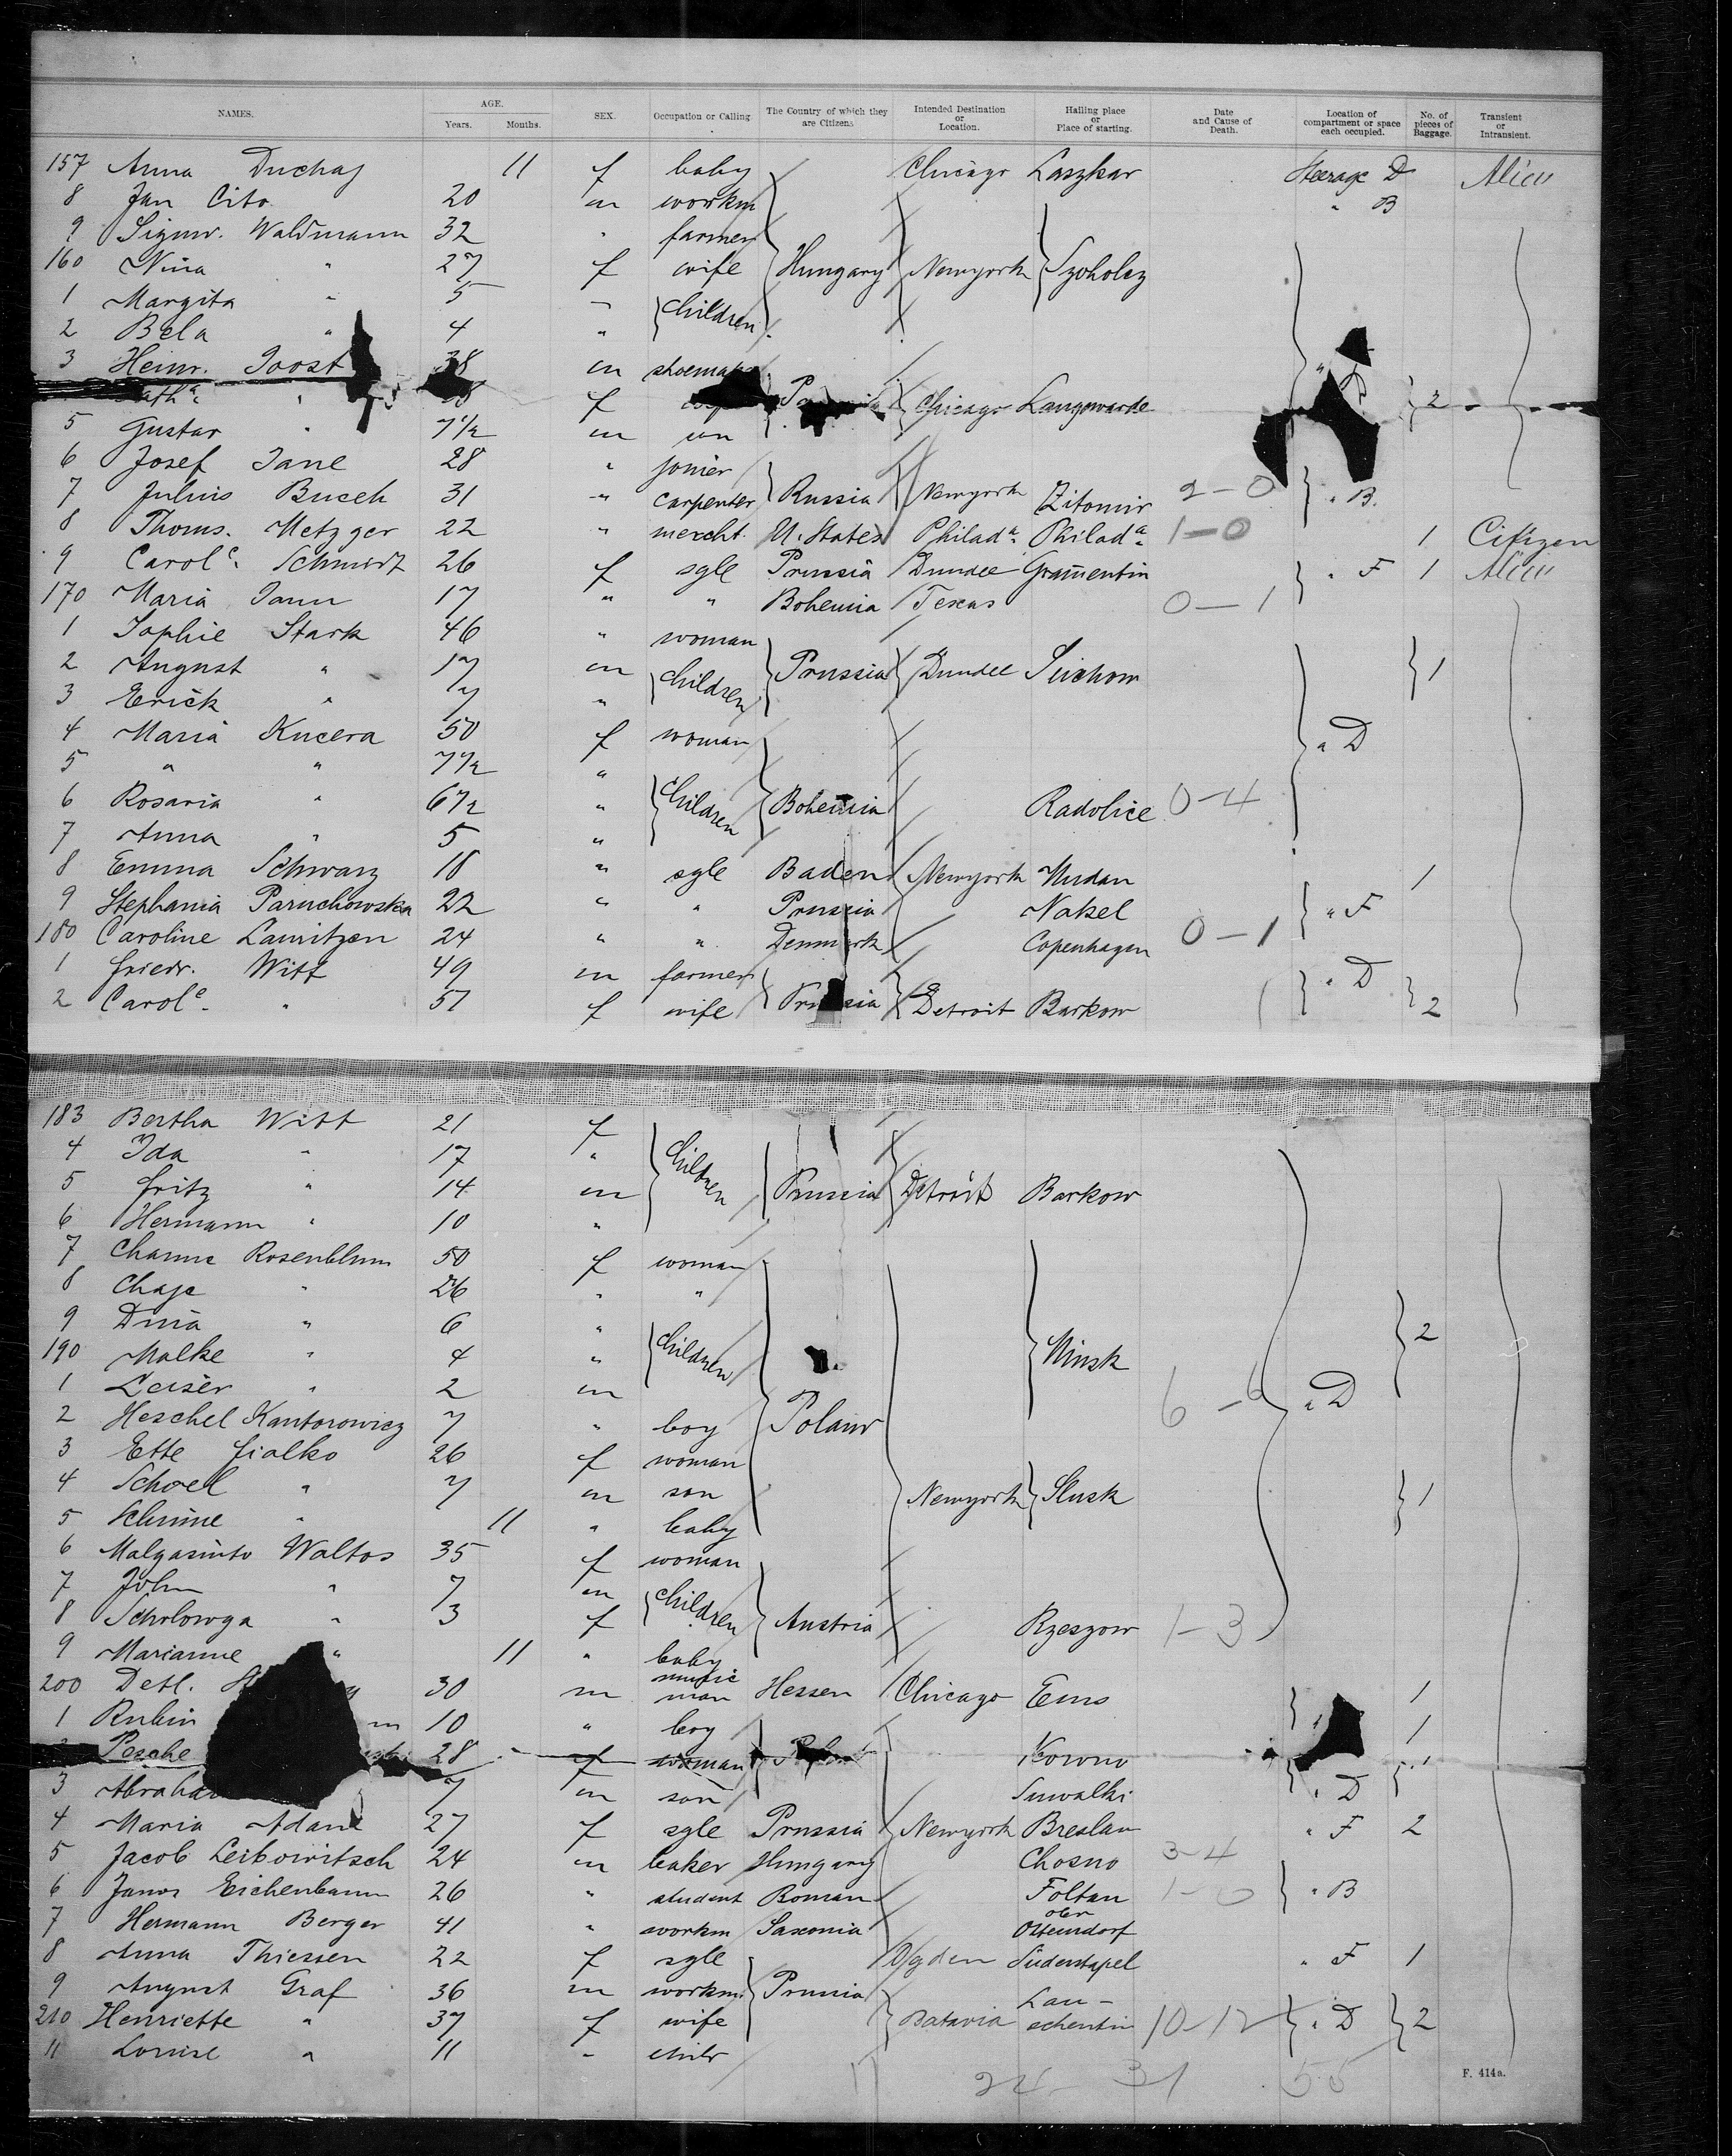 NAMES. AGE. Years. Months. SEX. Occupation or Calling The Country of which they are Citizens Intended Destination or Location. Hailing place or Place of starting. Date and Cause of Death. Location of compartment or space each occupied. No. of pieces of Baggage. Transient or Intransient.
157 Anna Duchaj 11 f baby Chicago Laszkar Steerage D Alien
8 Jan Cito 20 m workm " B
9 Sigmr. Waldmann 32 " farmer
160 Nina " 27 f wife Hungary Newyork Szoholcz
1 Margita " 5 " children
2 Bela " 4 "
3 Heinr. Joost 38 m shoemaker
f Chicago Langwarde 2
5 Gustav " 7 1/2 m
6 Josef Jane 28 " joiner
7 Julius Buceh 31 " carpenter Russia Newyork Zitomir 2-0 " B.
8 Thoms. Metzger 22 " mercht. U. States Philada. Philada. 1-0 1 Citizen
9 Carole. Schmidt 26 f sgle Prussia Dundee Gramentin " F 1 Alien
170 Maria Jann 17 " " Bohemia Texas 0-1
1 Sophie Stark 46 " woman
2 August " 17 m children Prussia Dundee Suchow 1
3 Erick " 7 "
4 Maria Kucera 50 f woman " D
5 " " 7 1/2 "
6 Rosaria " 6 1/2 " children Bohemia Radolice 0-4
7 Anna " 5 "
8 Emma Schwarz 18 " sgle Baden Newyork Mudau 1
9 Stephania Paruchowska 22 " " Prussia Nakel " F
180 Caroline Lauritzen 24 " " Denmark Copenhagen 0-1
1 Friedr. Witt 49 m farmer " D
2 Carole. " 51 f wife Prussia Detroit Barkow 2
183 Bertha Witt 21 f
4 Ida " 17 " children
5 Fritz " 14 m Prussia Detroit Barkow
6 Hermann " 10 "
7 Channe Rosenblum 50 f woman
8 Chaje " 26 " "
9 Dina " 6 " 2
190 Malke " 4 " children Minsk
1 Leiser " 2 m 6-6 " D
2 Heschel Kantorowicz 7 " boy Poland
3 Ette Fialko 26 f woman
4 Schoel " 7 m son Newyork Slusk 1
5 Schime " 11 " baby
6 Malgasinto Waltos 35 f woman
7 John " 7 m children
8 Scholowga " 3 f Austria Rzeszow 1-3
9 Marianne " 11 " baby
200 Detl. 30 m music man Hessen Chicago Ems 1
1 Rubin 10 " boy 1
Pesche 28 f woman Kowno
3 Abraham 7 m son Suwalki " D
4 Maria Adam 27 f sgle Prussia Newyork Breslau " F 2
5 Jacob Leibowitsch 24 m baker Hungary Chosno 3-4
6 Janos Eichenbaum 26 " student Roman Foltan 1-0 " B
7 Hermann Berger 41 " workm Saxonia ober Ottendorf
8 Anna Thiessen 22 f sgle Ogden Süderstapel " F 1
9 August Graf 36 m workm. Prussia
210 Henriette " 37 f wife Batavia Lau-echentin 10-12 " D 2
11 Louise " 11 " child
24 31 55
F. 414a.